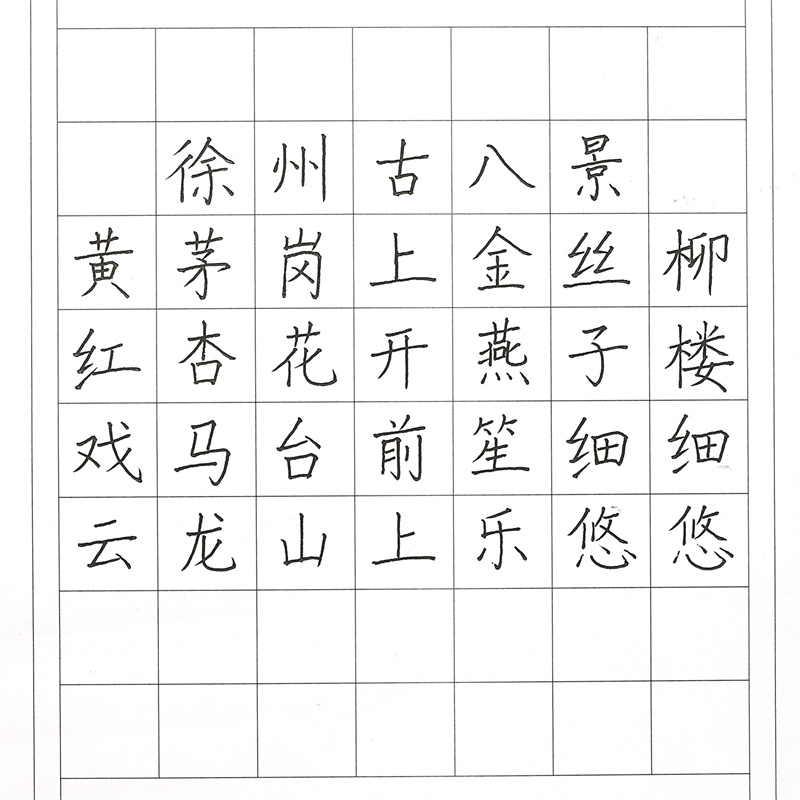 徐州古八景
黄茅岗上金丝柳
红杏花开燕子楼
戏马台前笙细细
云龙山上乐悠悠